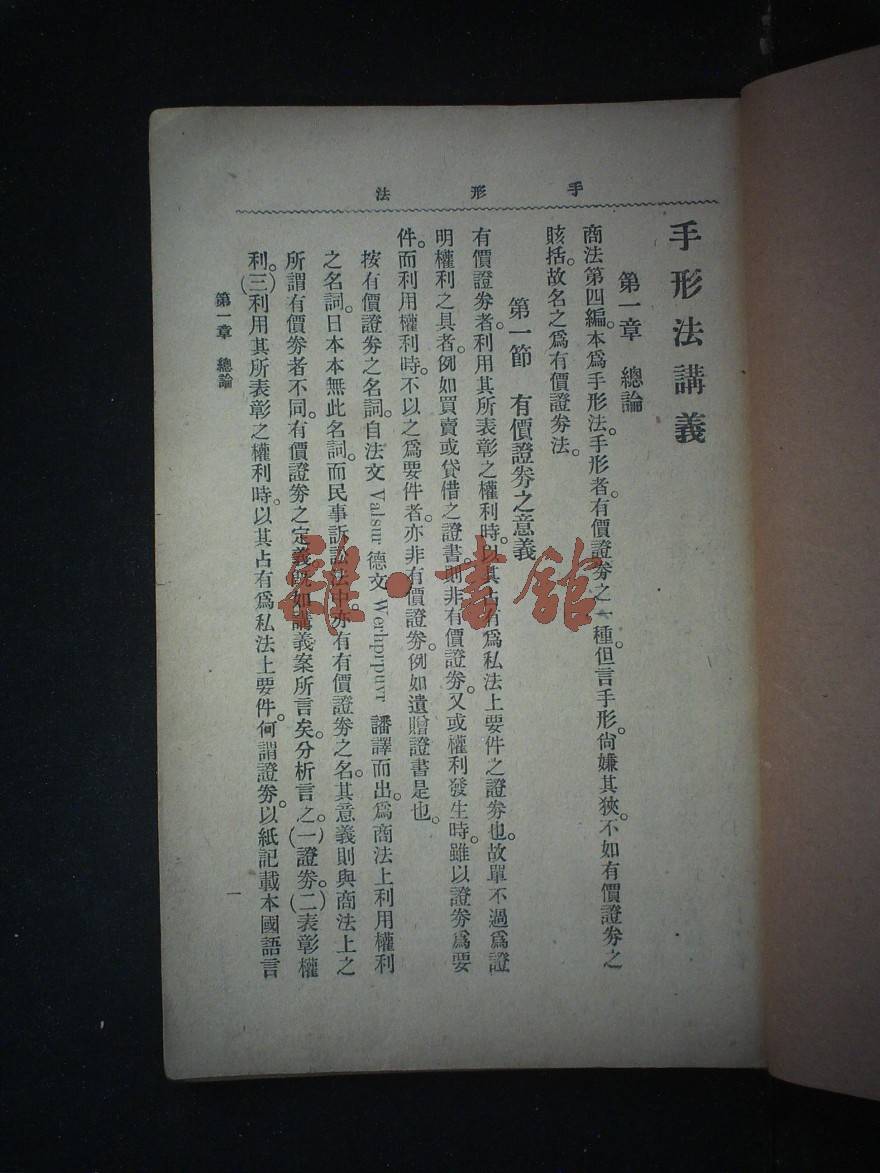 手形法
手形法講義
第一章　總論
商法第四編。本爲手形法。手形者。有價證券之一種。但言手形。尙嫌其狹。不如有價證券之
賅括。故名之爲有價證券法。
第一節　有價證券之意義
有價證券者。利用其所表彰之權利時。以其占有爲私法上要件之證券也。故單不過爲證
明權利之具者。例如買賣或貸借之證書。則非有價證券。又或權利發生時。雖以證券爲要
件。而利用權利時。不以之爲要件者。亦非有價證券。例如遺贈證書是也。
按有價證券之名詞。自法文 Valsur 德文 Werhprpuvr 譒譯而出。爲商法上利用權利
之名詞。日本本無此名詞。而民事訴訟法中。亦有有價證券之名。其意義則與商法上之
所謂有價券者不同。有價證券之定義。旣如講義案所言矣。分析言之。(一)證券。(二)表彰權
利。(三)利用其所表彰之權利時。以其占有爲私法上要件。何謂證券。以紙記載本國語言
第一章　總論
一
雜·書館